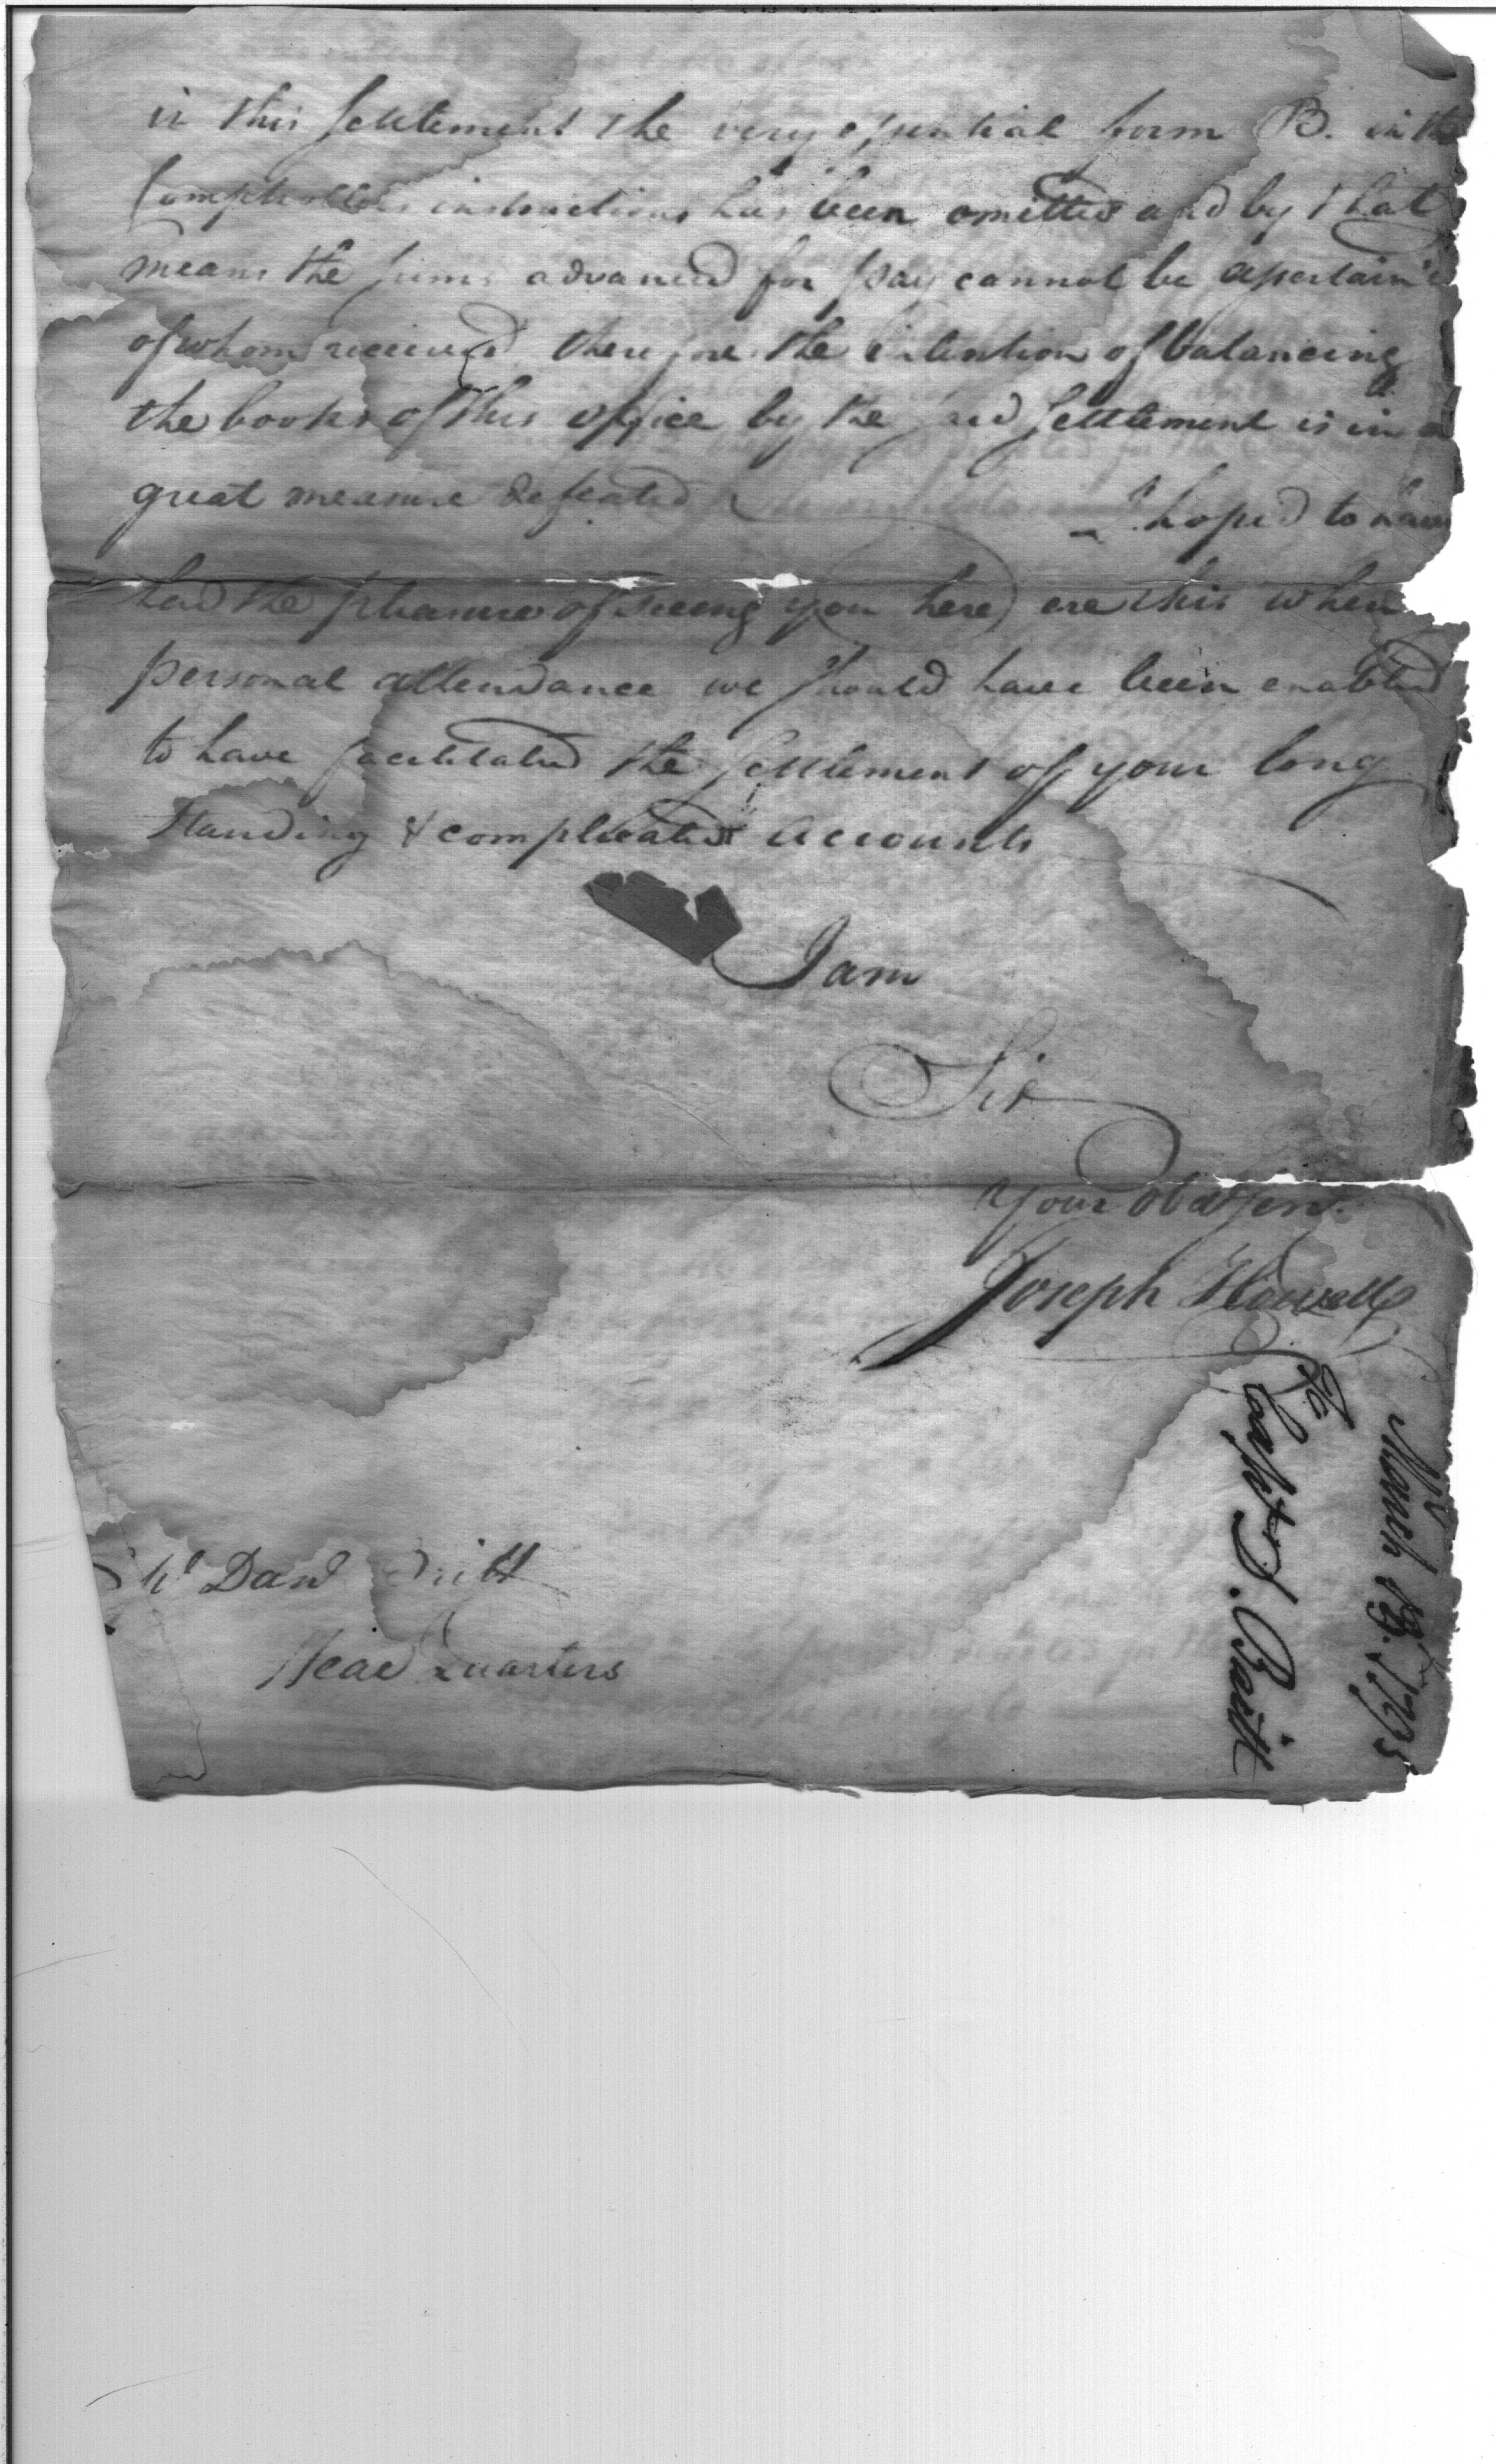 in this settlement the very essential form B. in the
Comptrollers instructions has been omitted and by that
means the sums advanced for pay cannot be assertain'd
of whom received, therefore the intention of balancing
the books of this office by the said settlement is in a
great measure defeated
I hoped to have
had the pleasure of seeing you here ere this when
personal attendance we should have been enabled
to have facilitated the settlement of your long
standing & complicated accounts
I am
Sir
Your Obdt Servt.
Joseph Howell
Danl Britt
Head Quarters
To Capt D. Britt
March 1795